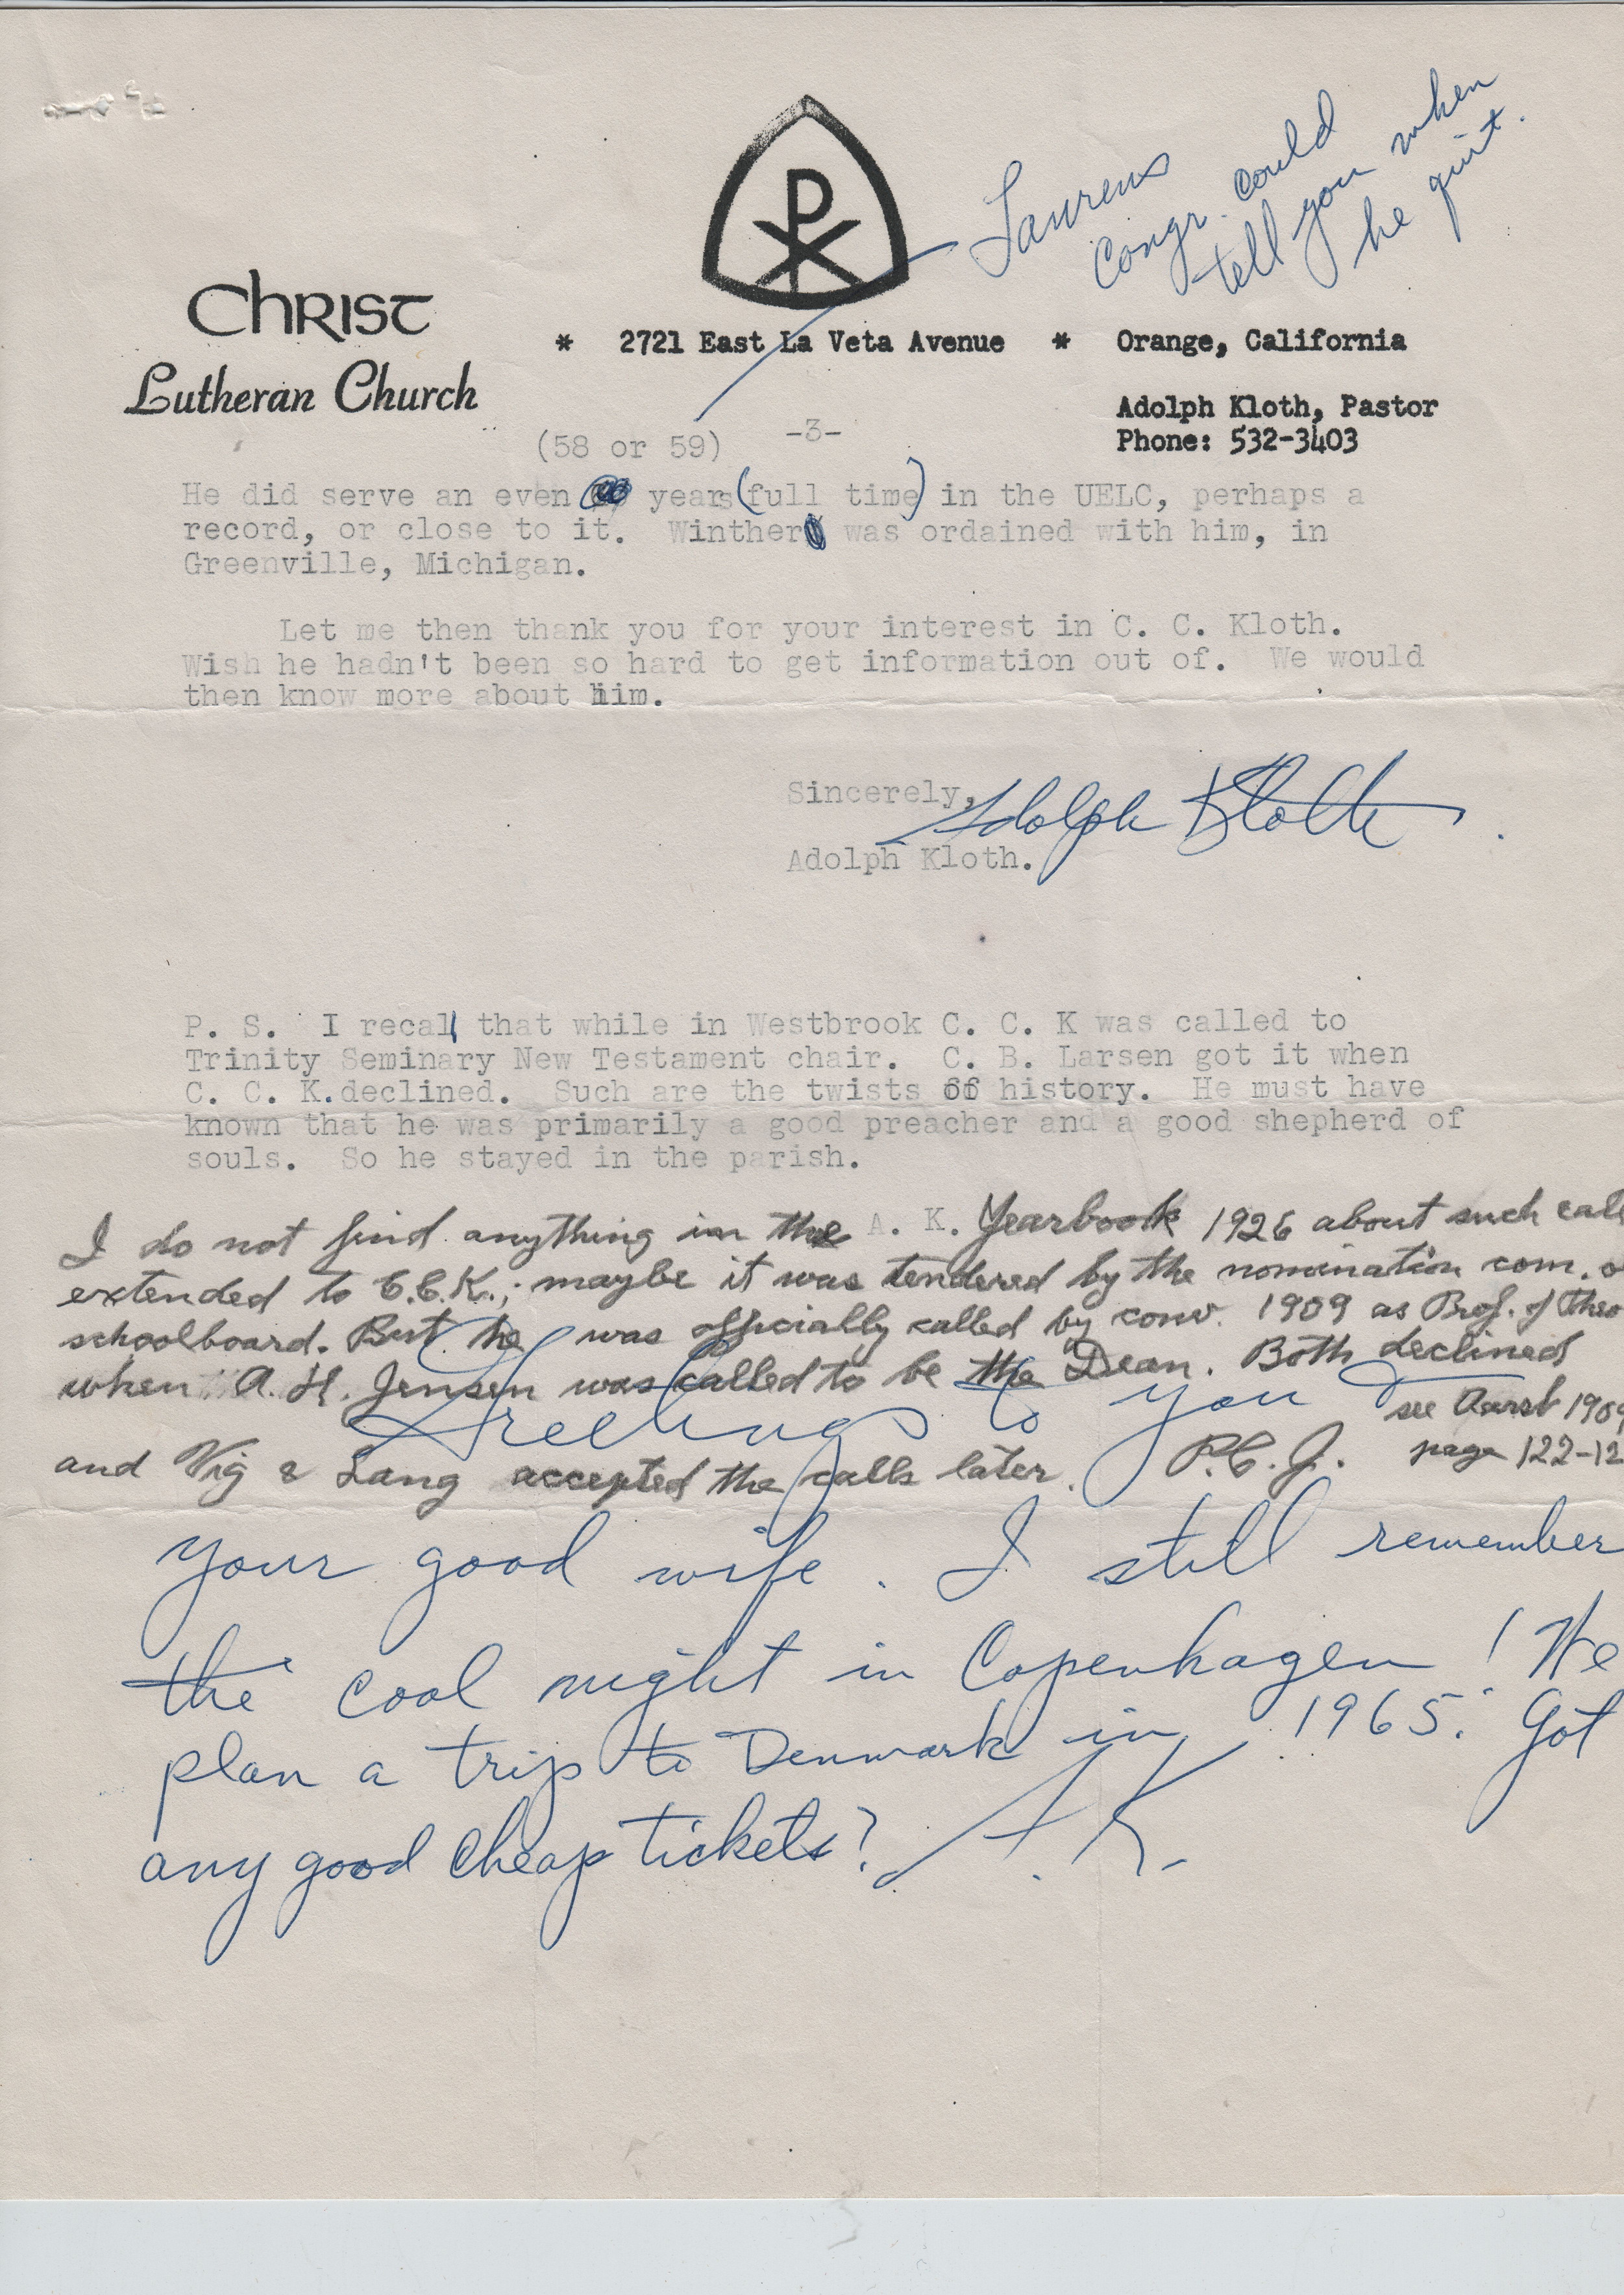 Laurens
Congr. could
tell you when
he quit.
Christ
Lutheran Church
* 2721 East La Veta Avenue * Orange, California
Adolph Kloth, Pastor
Phone: 532-3403
-3-
(58 or 59)
He did serve an even years (full time) in the UELC, perhaps a
record, or close to it. Winther was ordained with him, in
Greenville, Michigan.
Let me then thank you for your interest in C. C. Kloth.
Wish he hadn't been so hard to get information out of. We would
then know more about him.
Sincerely,
Adolph Kloth
Adolph Kloth.
P. S. I recall that while in Westbrook C. C. K was called to
Trinity Seminary New Testament chair. C. B. Larsen got it when
C. C. K. declined. Such are the twists of history. He must have
known that he was primarily a good preacher and a good shepherd of
souls. So he stayed in the parish.
A. K.
I do not find anything in the Yearbook 1926 about such call
extended to C.C.K.; maybe it was tendered by the nomination com. o
schoolboard. But he was officially called by conv. 1909 as Prof. of Theo
when A. H. Jensen was called to be the Dean. Both declined
see Aarsb 1909
and Vig & Lang accepted the calls later. P.C.J. page 122-12
Greetings to you &
your good wife. I still remember
the cool night in Copenhagen! We
plan a trip to Denmark in 1965. Got
any good cheap tickets? A. K.